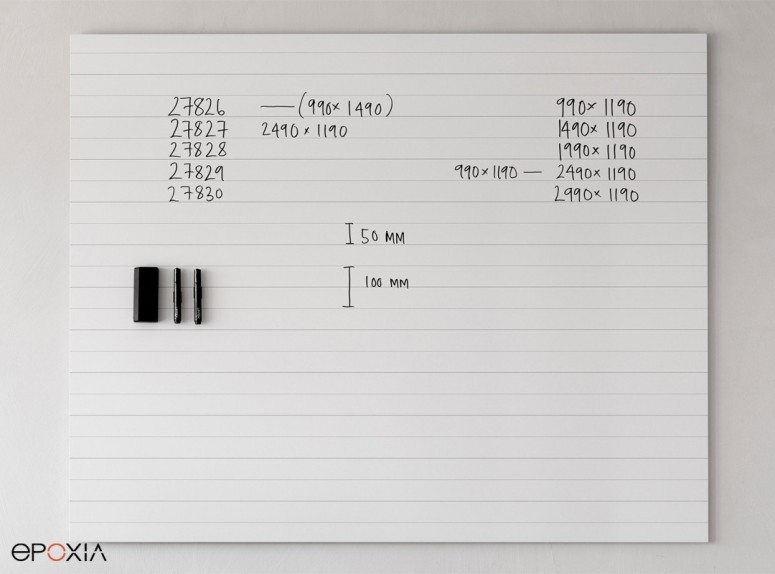 27826 — (990 x 1490) 990 x 1190
27827 2490 x 1190 1490 x 1190
27828 1990 x 1190
27829 990 x 1190 — 2490 x 1190
27830 2990 x 1190
50 MM
100 MM
EPOXIA